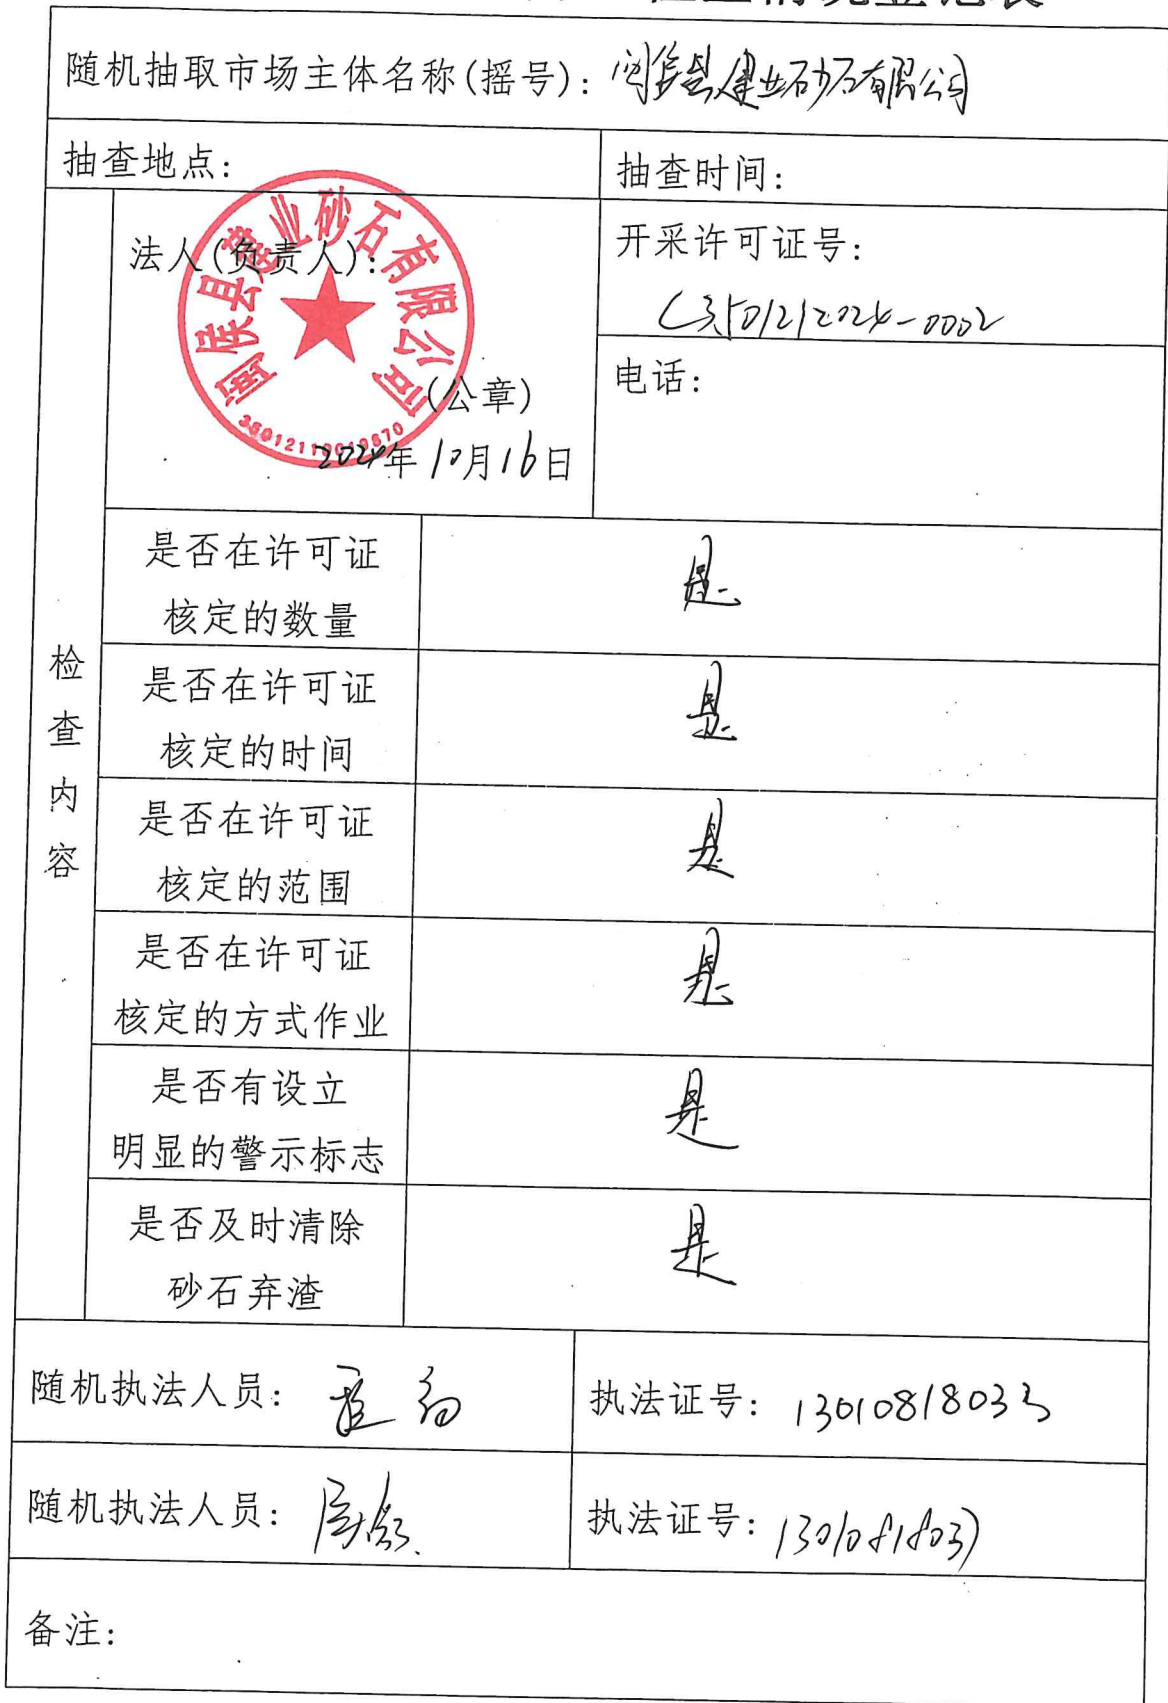 检查情况登记表
随机抽取市场主体名称(摇号): 闽侯县建业砂石有限公司
抽查地点:
抽查时间:
检查内容
法人(负责人):
闽侯县建业砂石有限公司
(公章)
2024年10月16日
开采许可证号:
(3501212024-0002
电话:
是否在许可证
核定的数量
是
是否在许可证
核定的时间
是
是否在许可证
核定的范围
是
是否在许可证
核定的方式作业
是
是否有设立
明显的警示标志
是
是否及时清除
砂石弃渣
是
随机执法人员:
执法证号: 13010818033
随机执法人员:
执法证号: 13010818037
备注: